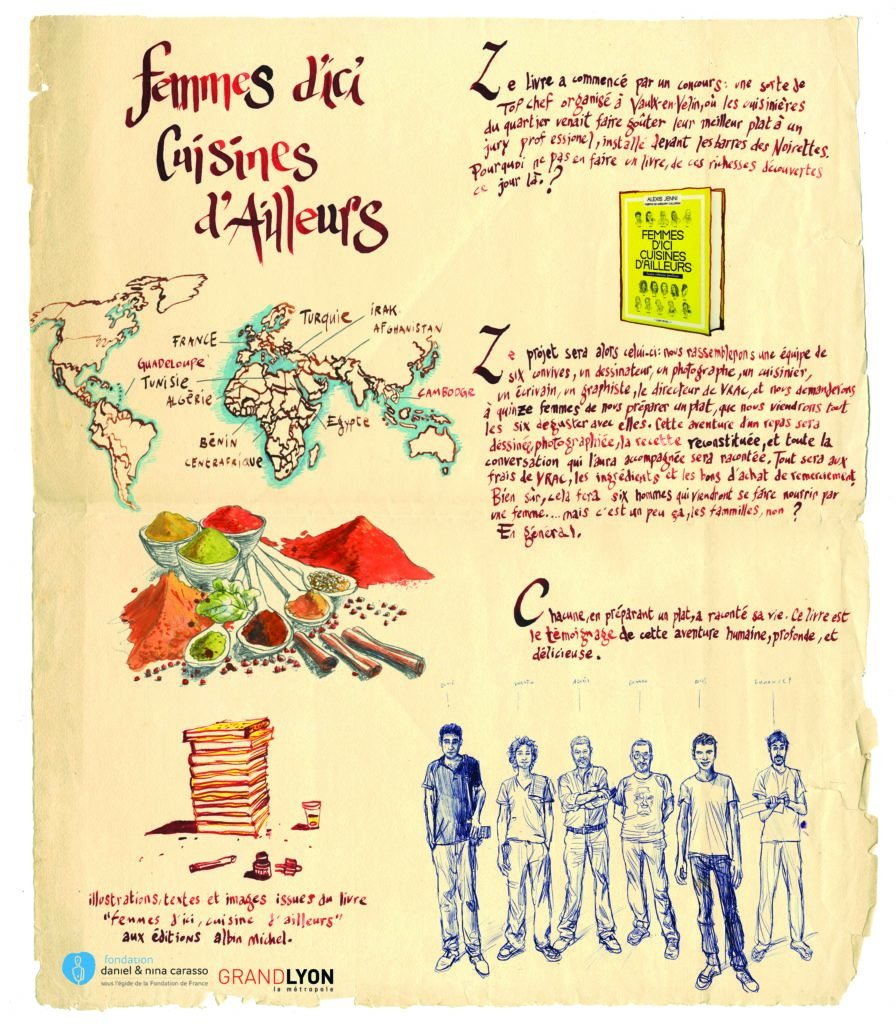 Femmes d'ici
Cuisines
d'Ailleurs
Le livre a commencé par un concours : une sorte de
Top chef organisé à Vaulx-en-Velin, où les cuisinières
du quartier venait faire goûter leur meilleur plat à un
jury professionel, installé devant les barres des Noirettes.
Pourquoi ne pas en faire un livre, de ces richesses découvertes
ce jour là. ?
ALEXIS JENNI
FEMMES
D'ICI
CUISINES
D'AILLEURS
TURQUIE
IRAK
AFGHANISTAN
FRANCE
GUADELOUPE
TUNISIE
ALGÉRIE
CAMBODGE
Egypte
BÉNIN
CENTRAFRIQUE
Le projet sera alors celui-ci: nous rassemblerons une équipe de
six convives, un dessinateur, un photographe, un cuisinier,
un écrivain, un graphiste, le directeur de VRAC, et nous demanderons
à quinze femmes de nous préparer un plat, que nous viendrons tout
les six déguster avec elles. Cette aventure d'un repas sera
déssinée, photographiée, la recette reconstituée, et toute la
conversation qui l'aura accompagnée sera racontée. Tout sera aux
frais de VRAC, les ingrédients et les bons d'achat de remerciement.
Bien sûr, cela fera six hommes qui viendront se faire nourrir par
une femme... mais c'est un peu ça, les fammilles, non ?
En général.
Chacune, en préparant un plat, a raconté sa vie. Ce livre est
le témoignage de cette aventure humaine, profonde, et
délicieuse.
illustrations, textes et images issues du livre
"femmes d'ici, cuisine d'ailleurs"
aux éditions albin michel.
fondation
daniel & nina carasso
sous l'égide de la Fondation de France
GRANDLYON
la métropole